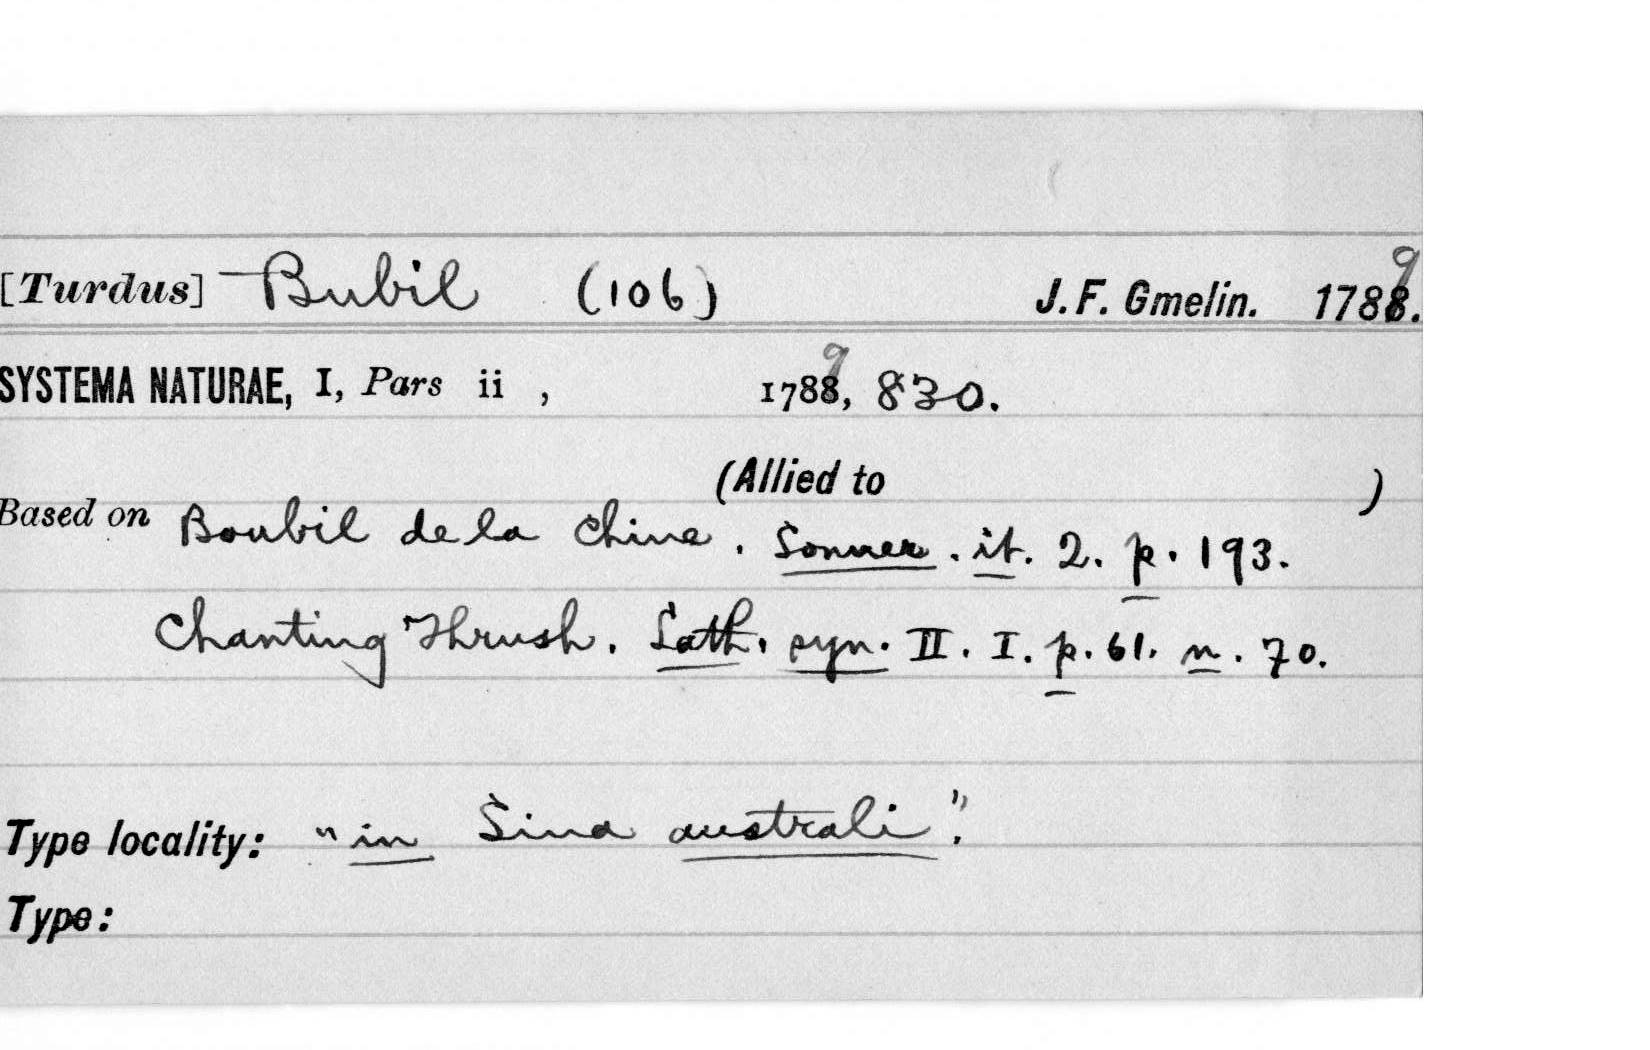 [Turdus] Bubil (106) J. F. Gmelin. 1789.
SYSTEMA NATURAE, I, Pars ii , 1789, 830.
(Allied to )
Based on Boubil de la Chine. Sonner. it. 2. p. 193.
Chanting Thrush. Lath. syn. II. I. p. 61. n. 70.
Type locality: "in Sina australi".
Type: